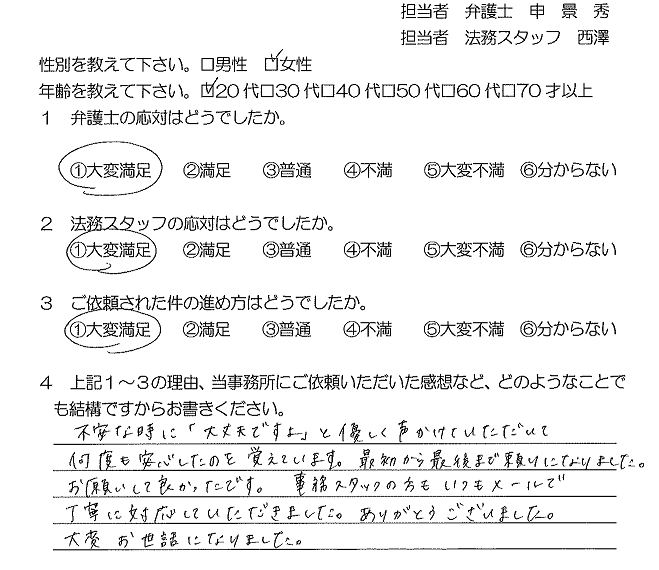 担当者　弁護士　申　景　秀
担当者　法務スタッフ　西澤
性別を教えて下さい。□男性　☑女性
年齢を教えて下さい。☑20代□30代□40代□50代□60代□70才以上
1　弁護士の応対はどうでしたか。
①大変満足　②満足　③普通　④不満　⑤大変不満　⑥分からない
2　法務スタッフの応対はどうでしたか。
①大変満足　②満足　③普通　④不満　⑤大変不満　⑥分からない
3　ご依頼された件の進め方はどうでしたか。
①大変満足　②満足　③普通　④不満　⑤大変不満　⑥分からない
4　上記1～3の理由、当事務所にご依頼いただいた感想など、どのようなことで
も結構ですからお書きください。
不安な時に「大丈夫ですよ」と優しく声かけていただいて
何度も安心したのを覚えています。最初から最後まで頼りになりました。
お願いして良かったです。事務スタッフの方もいつもメールで
丁寧に対応していただきました。ありがとうございました。
大変お世話になりました。